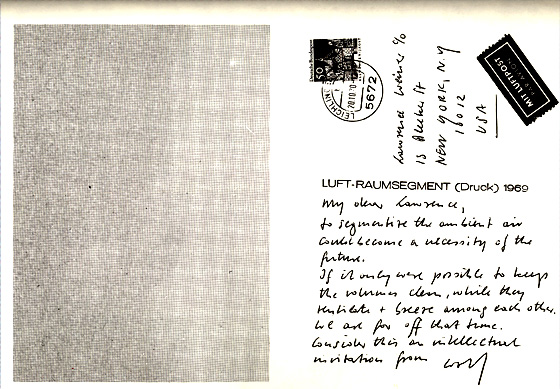 50
LEICHLIN
5672
MIT LUFTPOST
PAR AVION
Lawrence Weiner c/o
13 Bleecker St
NEW YORK, N.Y
10012
USA
LUFT-RAUMSEGMENT (Druck) 1969
My dear Lawrence,
to segmentise the ambient air
could become a necessity of the
future.
If it only were possible to keep
the volumes clean, while they
ventilate + breeze among each other.
We are far off that time.
Consider this an intellectual
invitation from